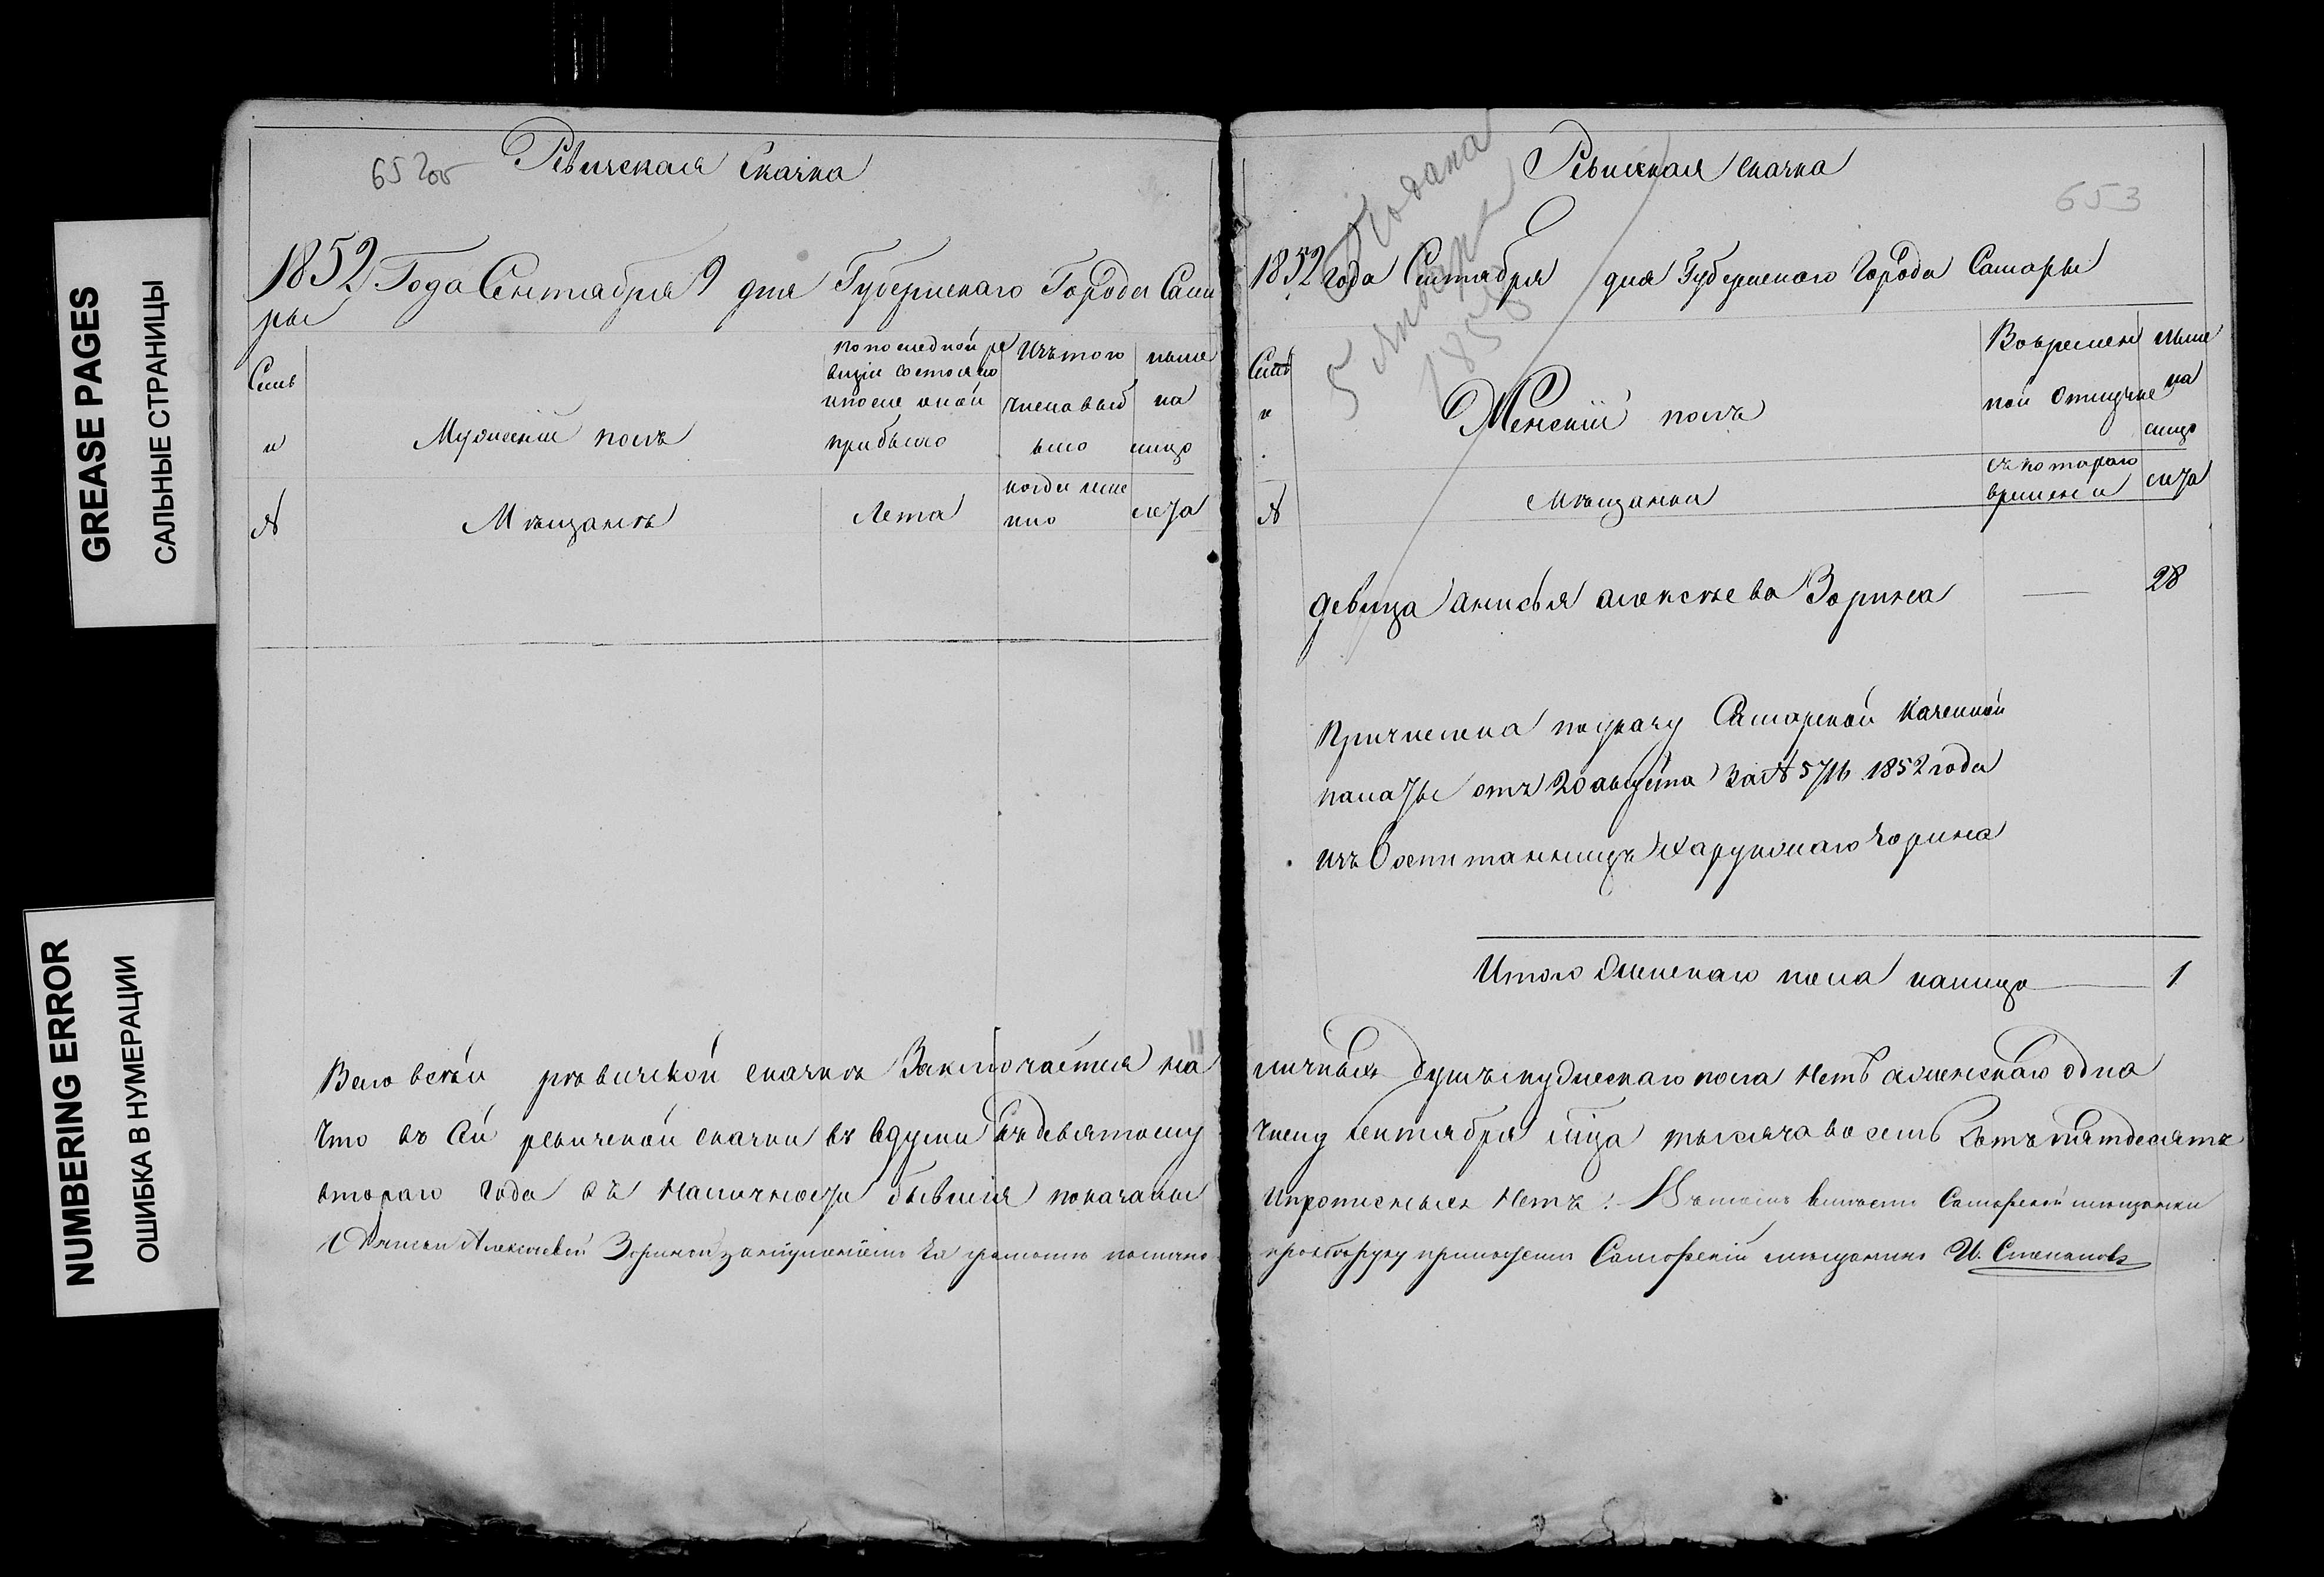 GREASE PAGES
САЛЬНЫЕ СТРАНИЦЫ
NUMBERING ERROR
ОШИБКА В НУМЕРАЦИИ
652об
Ревизская Сказка
1852 Года Сентября 9 дня Губернскаго Города Сама
ры
Семь
и
№
Мужескій полъ
Мещанъ
по последной ре
визіи состояло
и после оной
прибыло
Лета
Изъ того
числа выб
ыло
когда име
нно
ныне
на
лицо
лета
Всего в сей ревизской сказкѣ Заключается на
Что въ Сей ревизской сказки все души къ девятому
втораго года въ Наличности бывшія показаны
Анисьи Алексеевой Зориной за неуменіем ея грамоте по лично
653
Ревизская сказка
Подана
5 Января
1853
1852 года Сентября дня Губернскаго Города Самары
Семь
и
№
Женскій полъ
Мѣщанки
Вовремен
ной отлучке
съ котораго
времени
ныне
на
лицо
лета
девица анисья алексѣева Зорина 28
Причислена по указу Самарской Казенной
палаты отъ 20 августа За № 5716 1852 года
изъ Воспитанницъ Хорунжаго Зорина
Итого Женскаго пола налицо 1
личныхъ душъ мужескаго пола Нетъ а женскаго одна
Числу сентября мца тысяча восемь Сотъ пятдесятъ
и прописныхъ Нетъ. Въ томъ вместо Самарской мещанки
прозбе руку приложилъ Самарскій мещанинъ И. Степановъ